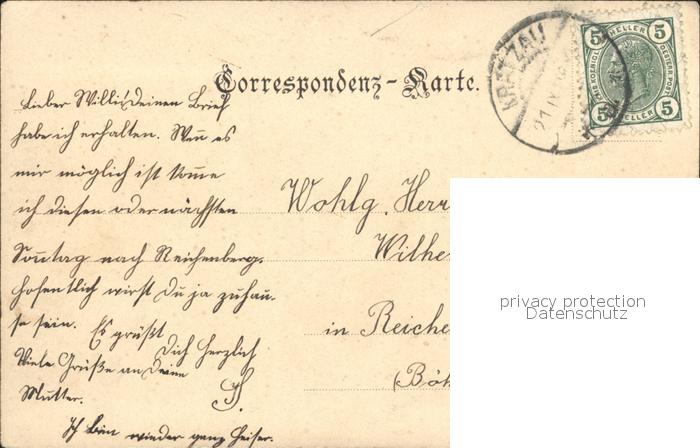 Correspondenz-Karte.
KRATZAU
21 IV
5 HELLER 5
5 HELLER 5
Lieber Willi! deinen Brief
habe ich erhalten. Wenn es
mir möglich ist komme
ich diesen oder nächsten
Sonntag nach Reichenberg.
hofentlich wirst du ja zuhau-
se sein. Es grüßt
Dich herzlich
Viele Grüße an deine
Mutter.
Ich bin wieder ganz heiser.
Wohlg. Herr
Wilhe
in Reiche
(Böh
privacy protection
Datenschutz